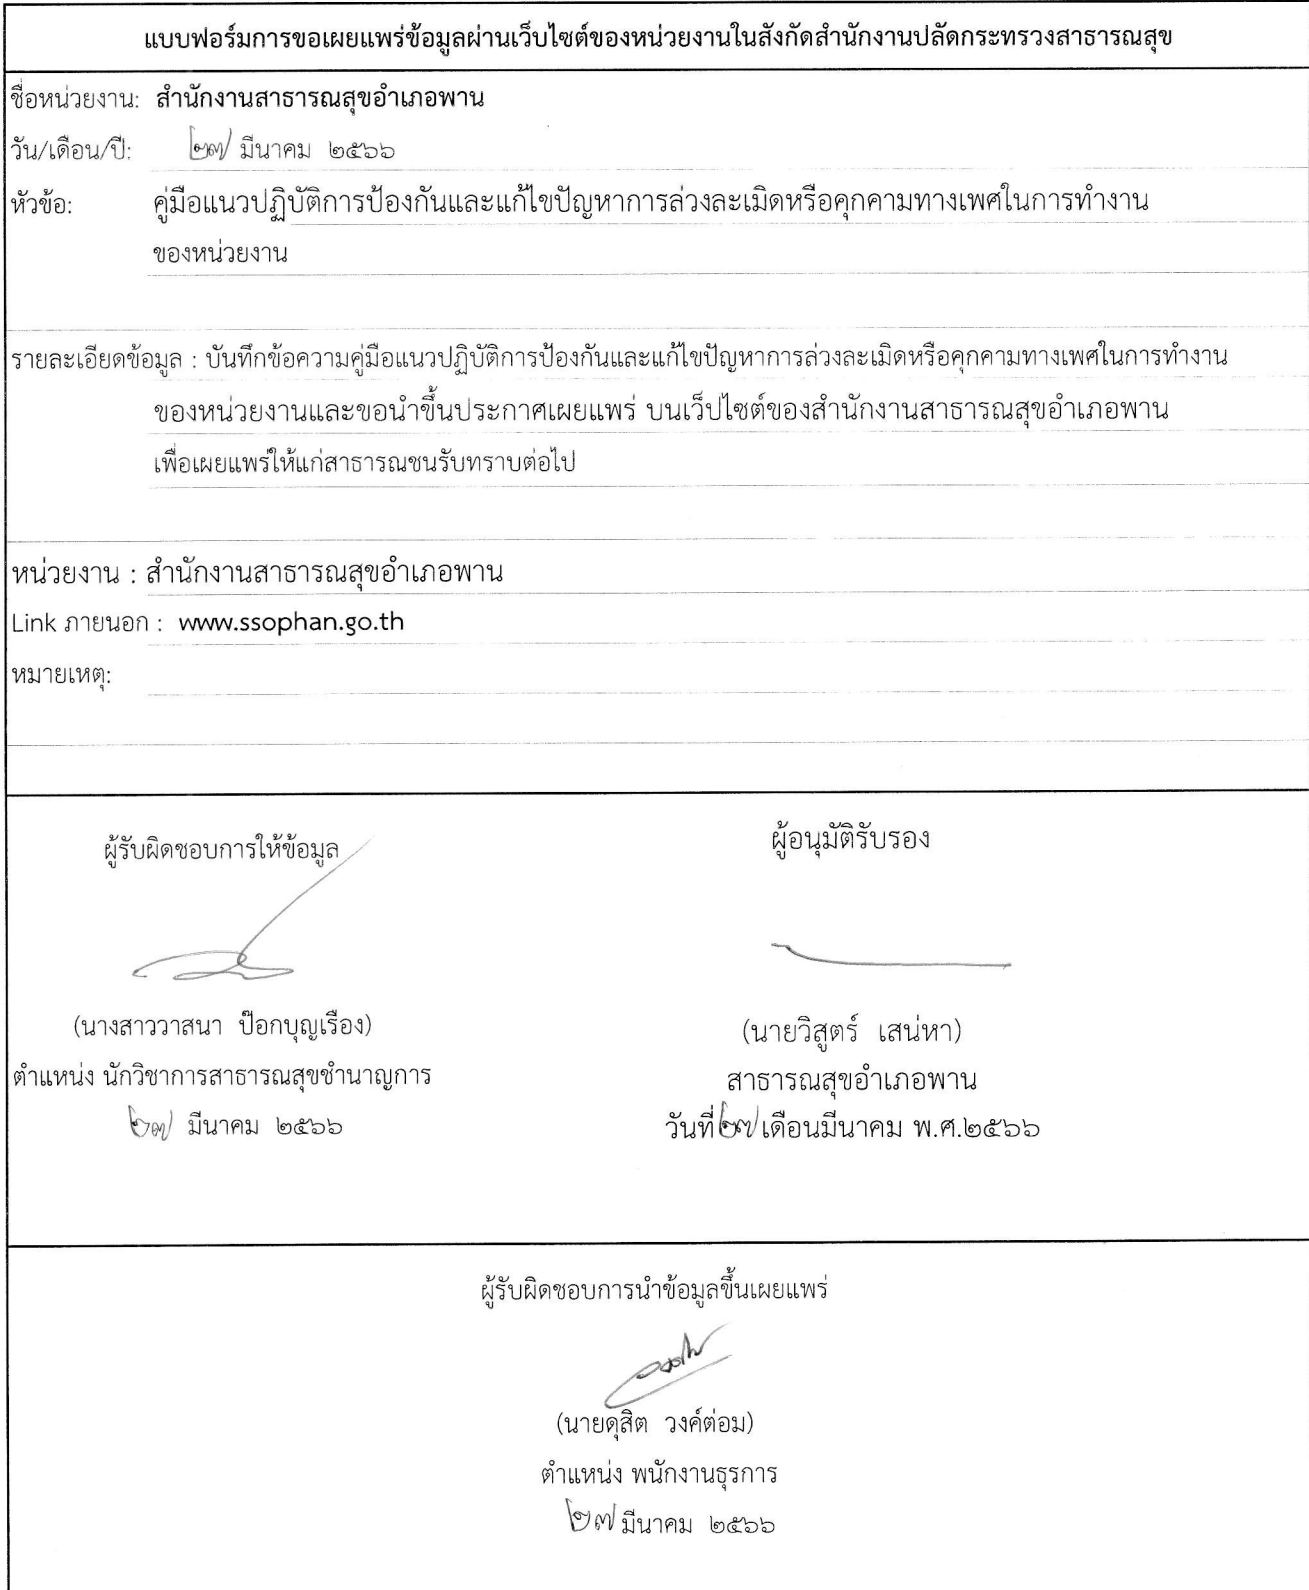 แบบฟอร์มการขอเผยแพร่ข้อมูลผ่านเว็บไซต์ของหน่วยงานในสังกัดสำนักงานปลัดกระทรวงสาธารณสุข
ชื่อหน่วยงาน: สำนักงานสาธารณสุขอำเภอพาน
วัน/เดือน/ปี: ๒๗ มีนาคม ๒๕๖๖
หัวข้อ: คู่มือแนวปฏิบัติการป้องกันและแก้ไขปัญหาการล่วงละเมิดหรือคุกคามทางเพศในการทำงาน
ของหน่วยงาน
รายละเอียดข้อมูล : บันทึกข้อความคู่มือแนวปฏิบัติการป้องกันและแก้ไขปัญหาการล่วงละเมิดหรือคุกคามทางเพศในการทำงาน
ของหน่วยงานและขอนำขึ้นประกาศเผยแพร่ บนเว็ปไซต์ของสำนักงานสาธารณสุขอำเภอพาน
เพื่อเผยแพร่ให้แก่สาธารณชนรับทราบต่อไป
หน่วยงาน : สำนักงานสาธารณสุขอำเภอพาน
Link ภายนอก : www.ssophan.go.th
หมายเหตุ:
ผู้รับผิดชอบการให้ข้อมูล
(นางสาววาสนา ป๊อกบุญเรือง)
ตำแหน่ง นักวิชาการสาธารณสุขชำนาญการ
๒๗ มีนาคม ๒๕๖๖
ผู้อนุมัติรับรอง
(นายวิสูตร์ เสน่หา)
สาธารณสุขอำเภอพาน
วันที่ ๒๗ เดือนมีนาคม พ.ศ.๒๕๖๖
ผู้รับผิดชอบการนำข้อมูลขึ้นเผยแพร่
(นายดุสิต วงค์ต่อม)
ตำแหน่ง พนักงานธุรการ
๒๗ มีนาคม ๒๕๖๖